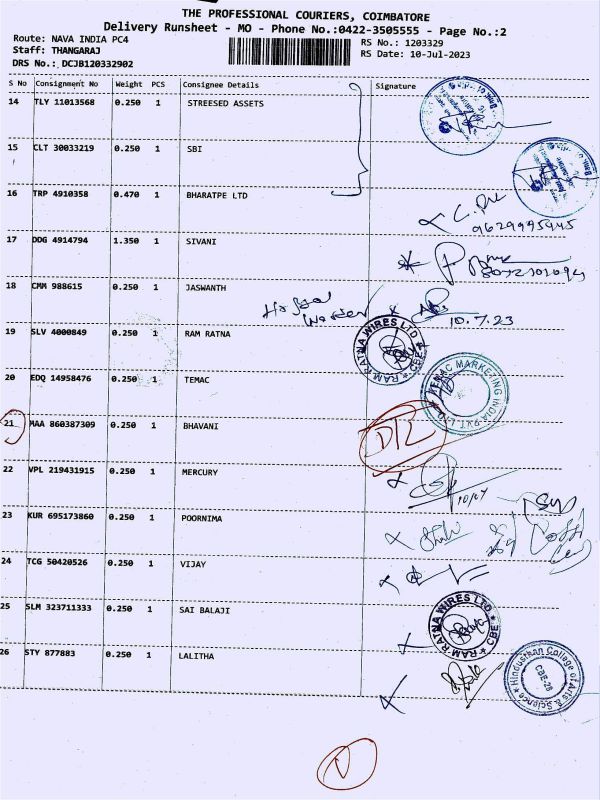 THE PROFESSIONAL COURIERS, COIMBATORE
Delivery Runsheet - MO - Phone No.:0422-3505555 - Page No.:2
Route: NAVA INDIA PC4
RS No.: 1203329
Staff: THANGARAJ
RS Date: 10-Jul-2023
DRS No.: DCJB120332902
S No Consignment No Weight PCS Consignee Details Signature
14 TLY 11013568 0.250 1 STREESED ASSETS
15 CLT 30033219 0.250 1 SBI
16 TRP 4910358 0.470 1 BHARATPE LTD
9629995445
17 DDG 4914794 1.350 1 SIVANI
18 CMM 988615 0.250 1 JASWANTH
Hostel Warden
10.7.23
19 SLV 4000849 0.250 1 RAM RATNA
RAM RATNA WIRES LTD CBE
20 EDQ 14958476 0.250 1 TEMAC
TEMAC MARKETING INDIA PVT LTD
21 MAA 860387309 0.250 1 BHAVANI
DTL
22 VPL 219431915 0.250 1 MERCURY
10/7
23 KUR 695173860 0.250 1 POORNIMA
24 TCG 50420526 0.250 1 VIJAY
25 SLM 323711333 0.250 1 SAI BALAJI
RAM RATNA WIRES LTD CBE
26 STY 877883 0.250 1 LALITHA
Hindusthan College of Arts & Science
CBE-28